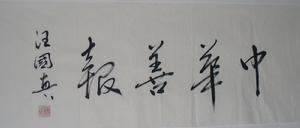 中華善報
汪國真